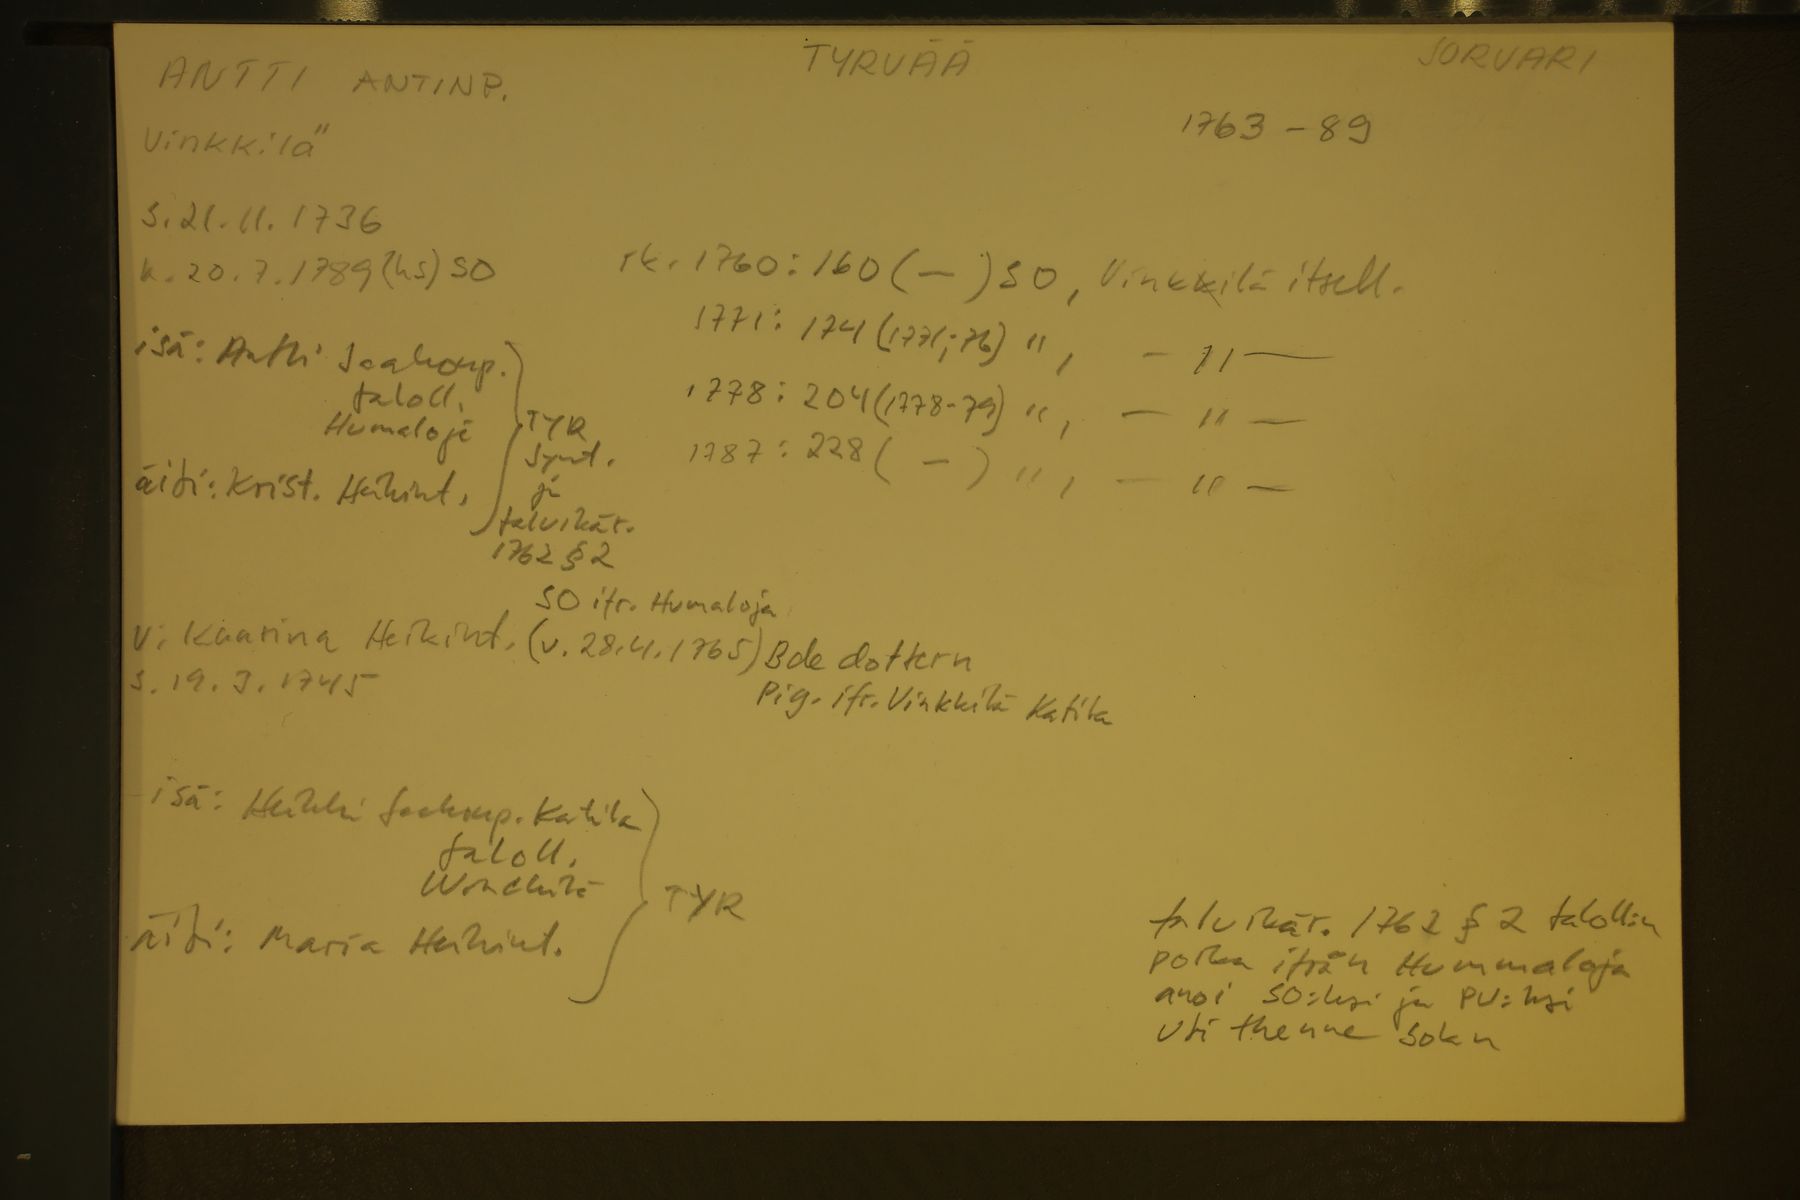 ANTTI ANTINP.
TYRVÄÄ
SORVARI
1763 - 89
Vinkkilä
s. 21.11.1736
k. 20.7.1789 (hs) SO
rk. 1760: 160 ( — ) SO, Vinkkilä itsell.
1771: 174 (1771; 76) ", — " —
1778: 204 (1778-79) ", — " —
1787: 228 ( — ) ", — " —
isä: Antti Jaakonp.
taloll.
Humaloja
äiti: Krist. Heikint.
TYR
synt.
ja
talvikär.
1762 § 2
SO ifr. Humaloja
v: Kaarina Heikint. (v. 28.4.1765) Bde dottern
s. 19.3.1745
Pig. ifr. Vinkkilä Katila
isä: Heikki Jaakonp. Katila
taloll.
äiti: Maria Heikint.
TYR
talvikär. 1762 § 2 talollin
poika ifrån Hummaloja
anoi SO:ksi ja PU:ksi
uti thenne Sokn